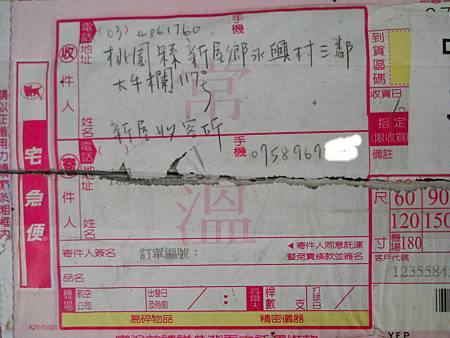 (03) 4861760
電話
手機
收件人
地址
桃園縣新屋鄉永興村三鄰
大牛欄117號
姓名
新屋收容所
到貨區碼
收貨日
指定
(限收貨)
備註
宅急便
常溫
寄件人
電話
手機
0958969
地址
尺寸
60 90
120 150
機場 180
寄件人簽名
訂單編號:
◀寄件人同意託運
暨免責條款並簽名
客戶代碼
1235584
品名
機場
航空公司
出發日及時刻
/ :
高爾夫
桿數
支
打球日
/
易碎物品
精密儀器
A2Y-10001